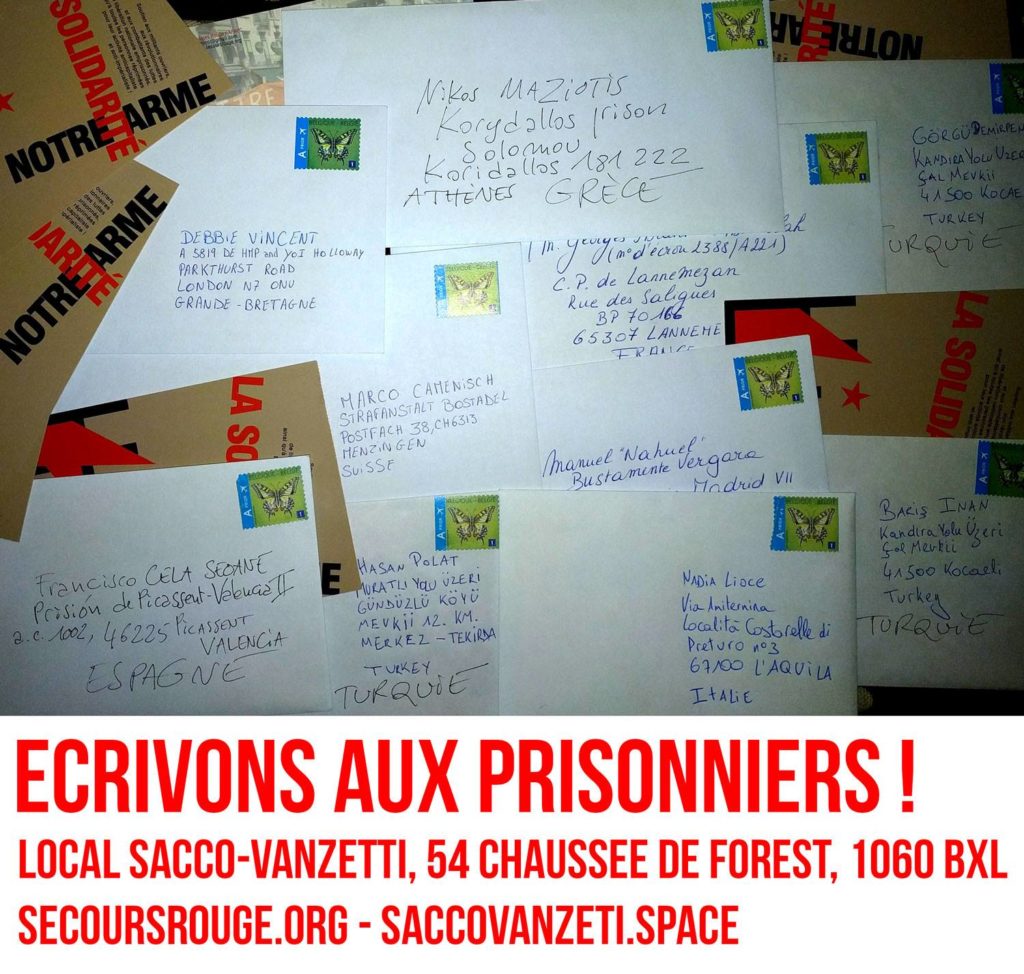 SOLIDARITÉ
NOTRE ARME
ARITÉ
NOTRE ARME
NOTRE
Nikos MAZIOTIS
Korydallos prison
Solomou
Koridallos 181 222
ATHÈNES GRÈCE
A PRIOR
1
DEBBIE VINCENT
A 5819 DE HMP and YOI HOLLOWAY
PARKTHURST ROAD
LONDON N7 0NU
GRANDE-BRETAGNE
GÖRGÜ DEMIRPEN
KANDIRA YOLU ÜZER
ŞAL MEVKII
41500 KOCAE
TURKEY
TURQUIE
(M. Georges
(n° d'écrou 2388/A221)
C.P. de Lannemezan
Rue des Saligues
BP 70166
65307 LANNEME
FRANC
MARCO CAMENISCH
STRAFANSTALT BOSTADEL
POSTFACH 38, CH6313
MENZINGEN
SUISSE
LA SO
LA SOLIDA
Manuel "Nahuel"
Bustamente Vergara
Madrid VII
Francisco CELA SEOANE
Prisión de Picassent-Valencia II
a.c. 1002, 46225 PICASSENT
VALENCIA
ESPAGNE
HASAN POLAT
MURATLI YOLU ÜZERI
GÜNDÜZLÜ KÖYÜ
MEVKII 12. KM.
MERKEZ – TEKIRDA
TURKEY
TURQUIE
NADIA LIOCE
Via Amiternina
Località Costarelle di
Preturo n°3
67100 L'AQUILA
ITALIE
BARIŞ INAN
Kandira Yolu Üzeri
Şal Mevkii
41500 Kocaeli
Turkey
TURQUIE
ECRIVONS AUX PRISONNIERS !
LOCAL SACCO-VANZETTI, 54 CHAUSSEE DE FOREST, 1060 BXL
SECOURSROUGE.ORG - SACCOVANZETI.SPACE